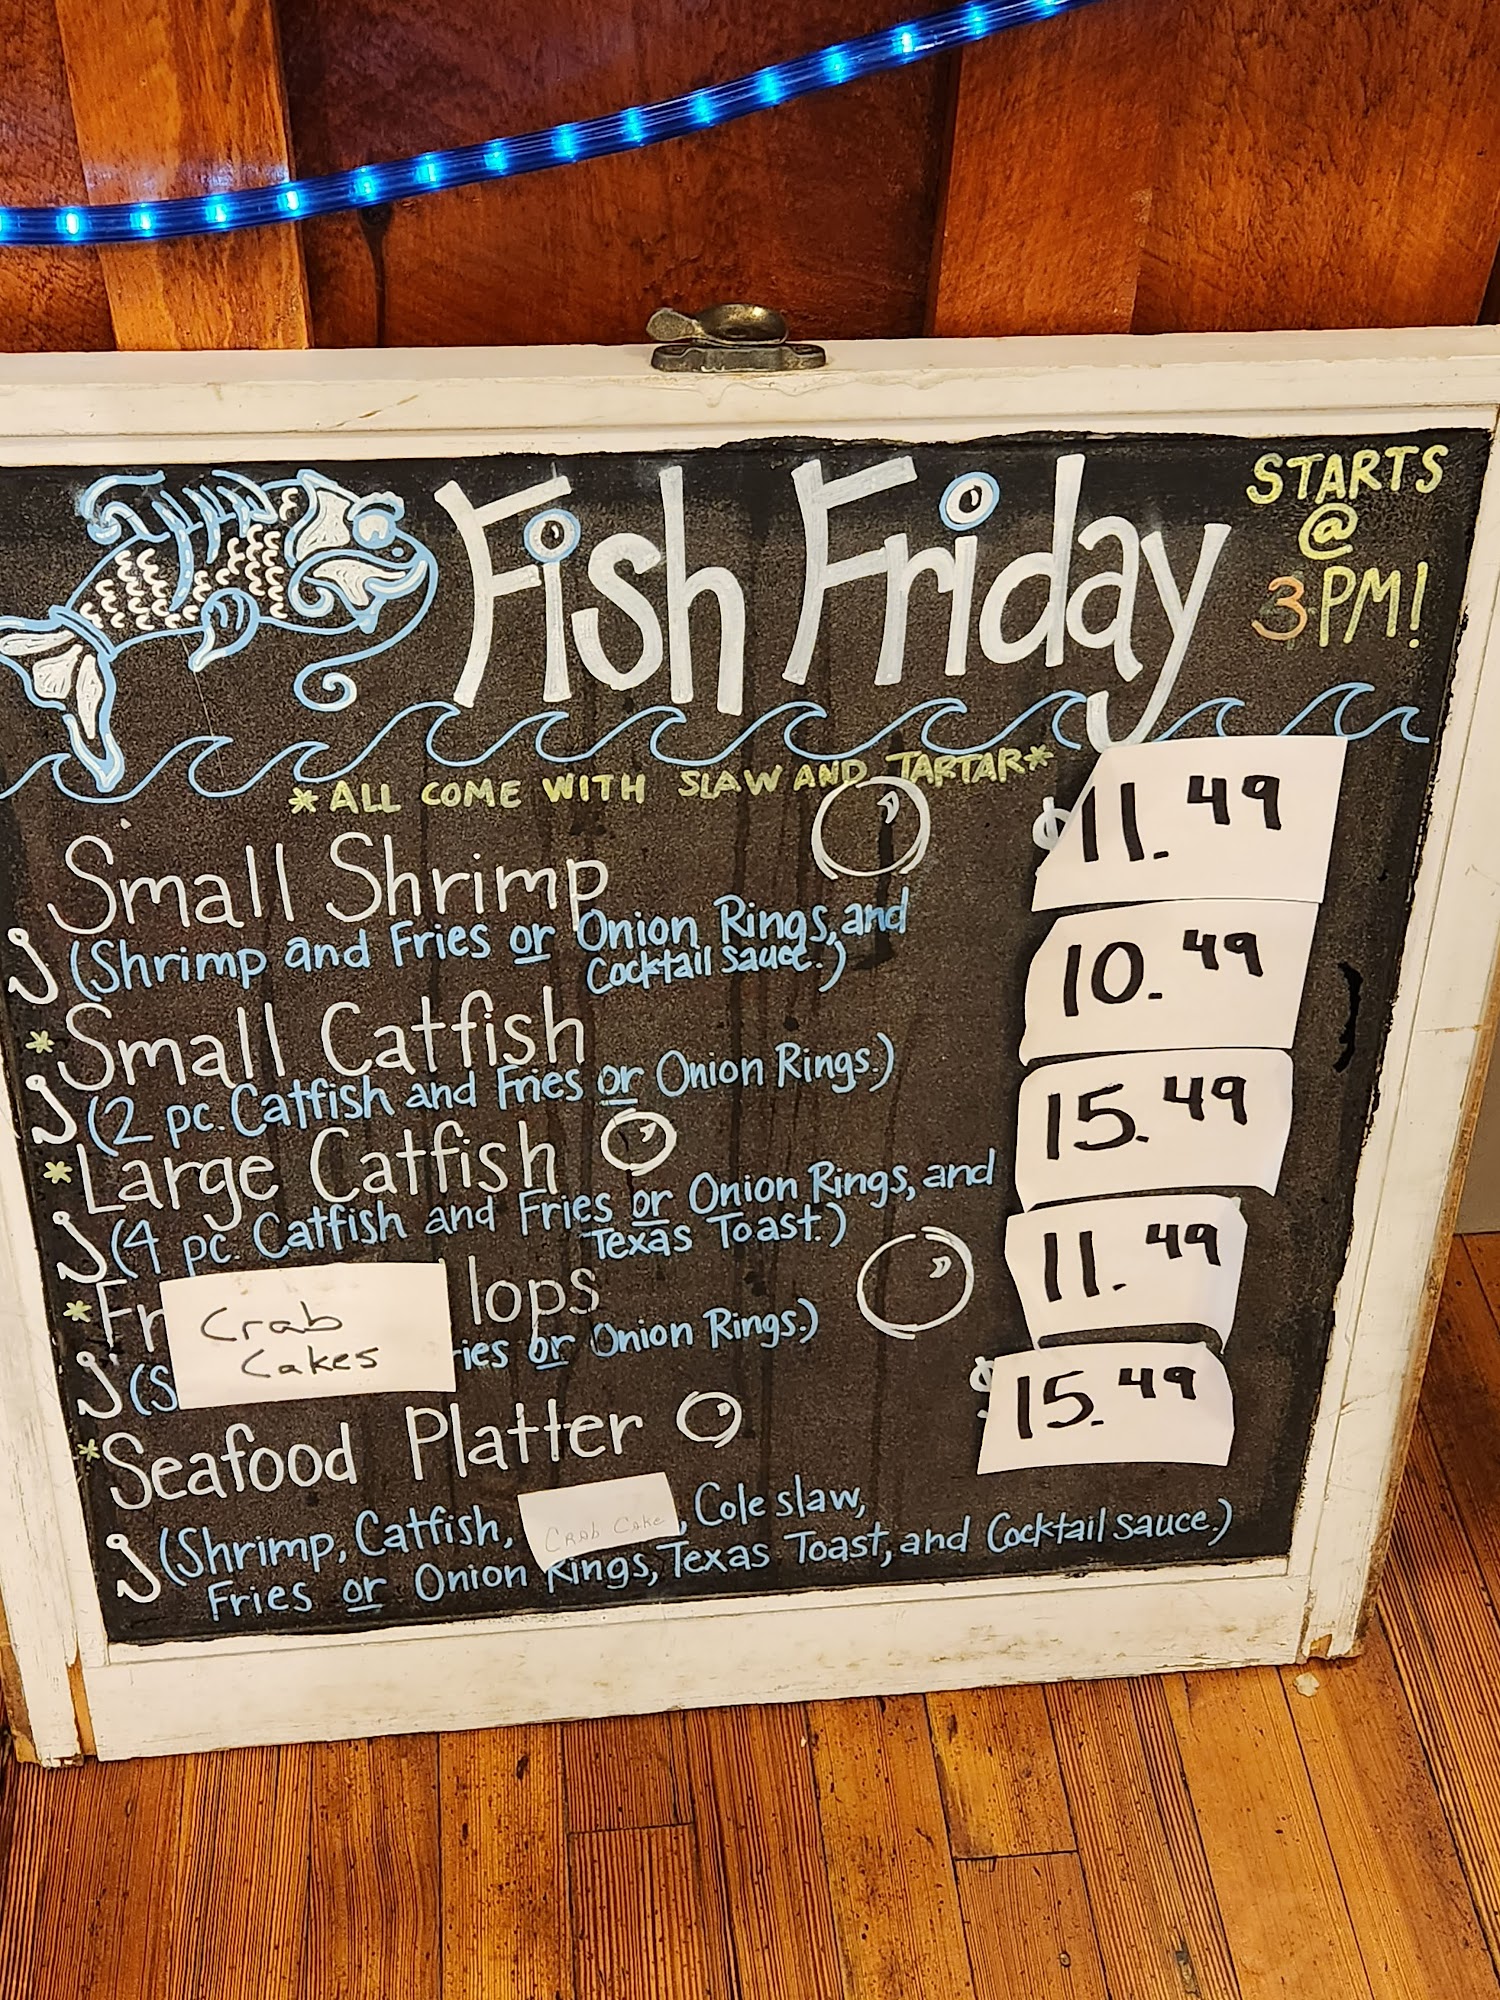 Fish Friday
STARTS
@
3PM!
*ALL COME WITH SLAW AND TARTAR*
Small Shrimp
$11.49
(Shrimp and Fries or Onion Rings, and
Cocktail Sauce.)
*Small Catfish
10.49
(2 pc. Catfish and Fries or Onion Rings.)
*Large Catfish
15.49
(4 pc. Catfish and Fries or Onion Rings, and
Texas Toast.)
*Fr lops
11.49
Crab
Cakes
(S ries or Onion Rings.)
*Seafood Platter
$15.49
(Shrimp, Catfish, Crab Cake, Cole slaw,
Fries or Onion Rings, Texas Toast, and Cocktail sauce.)